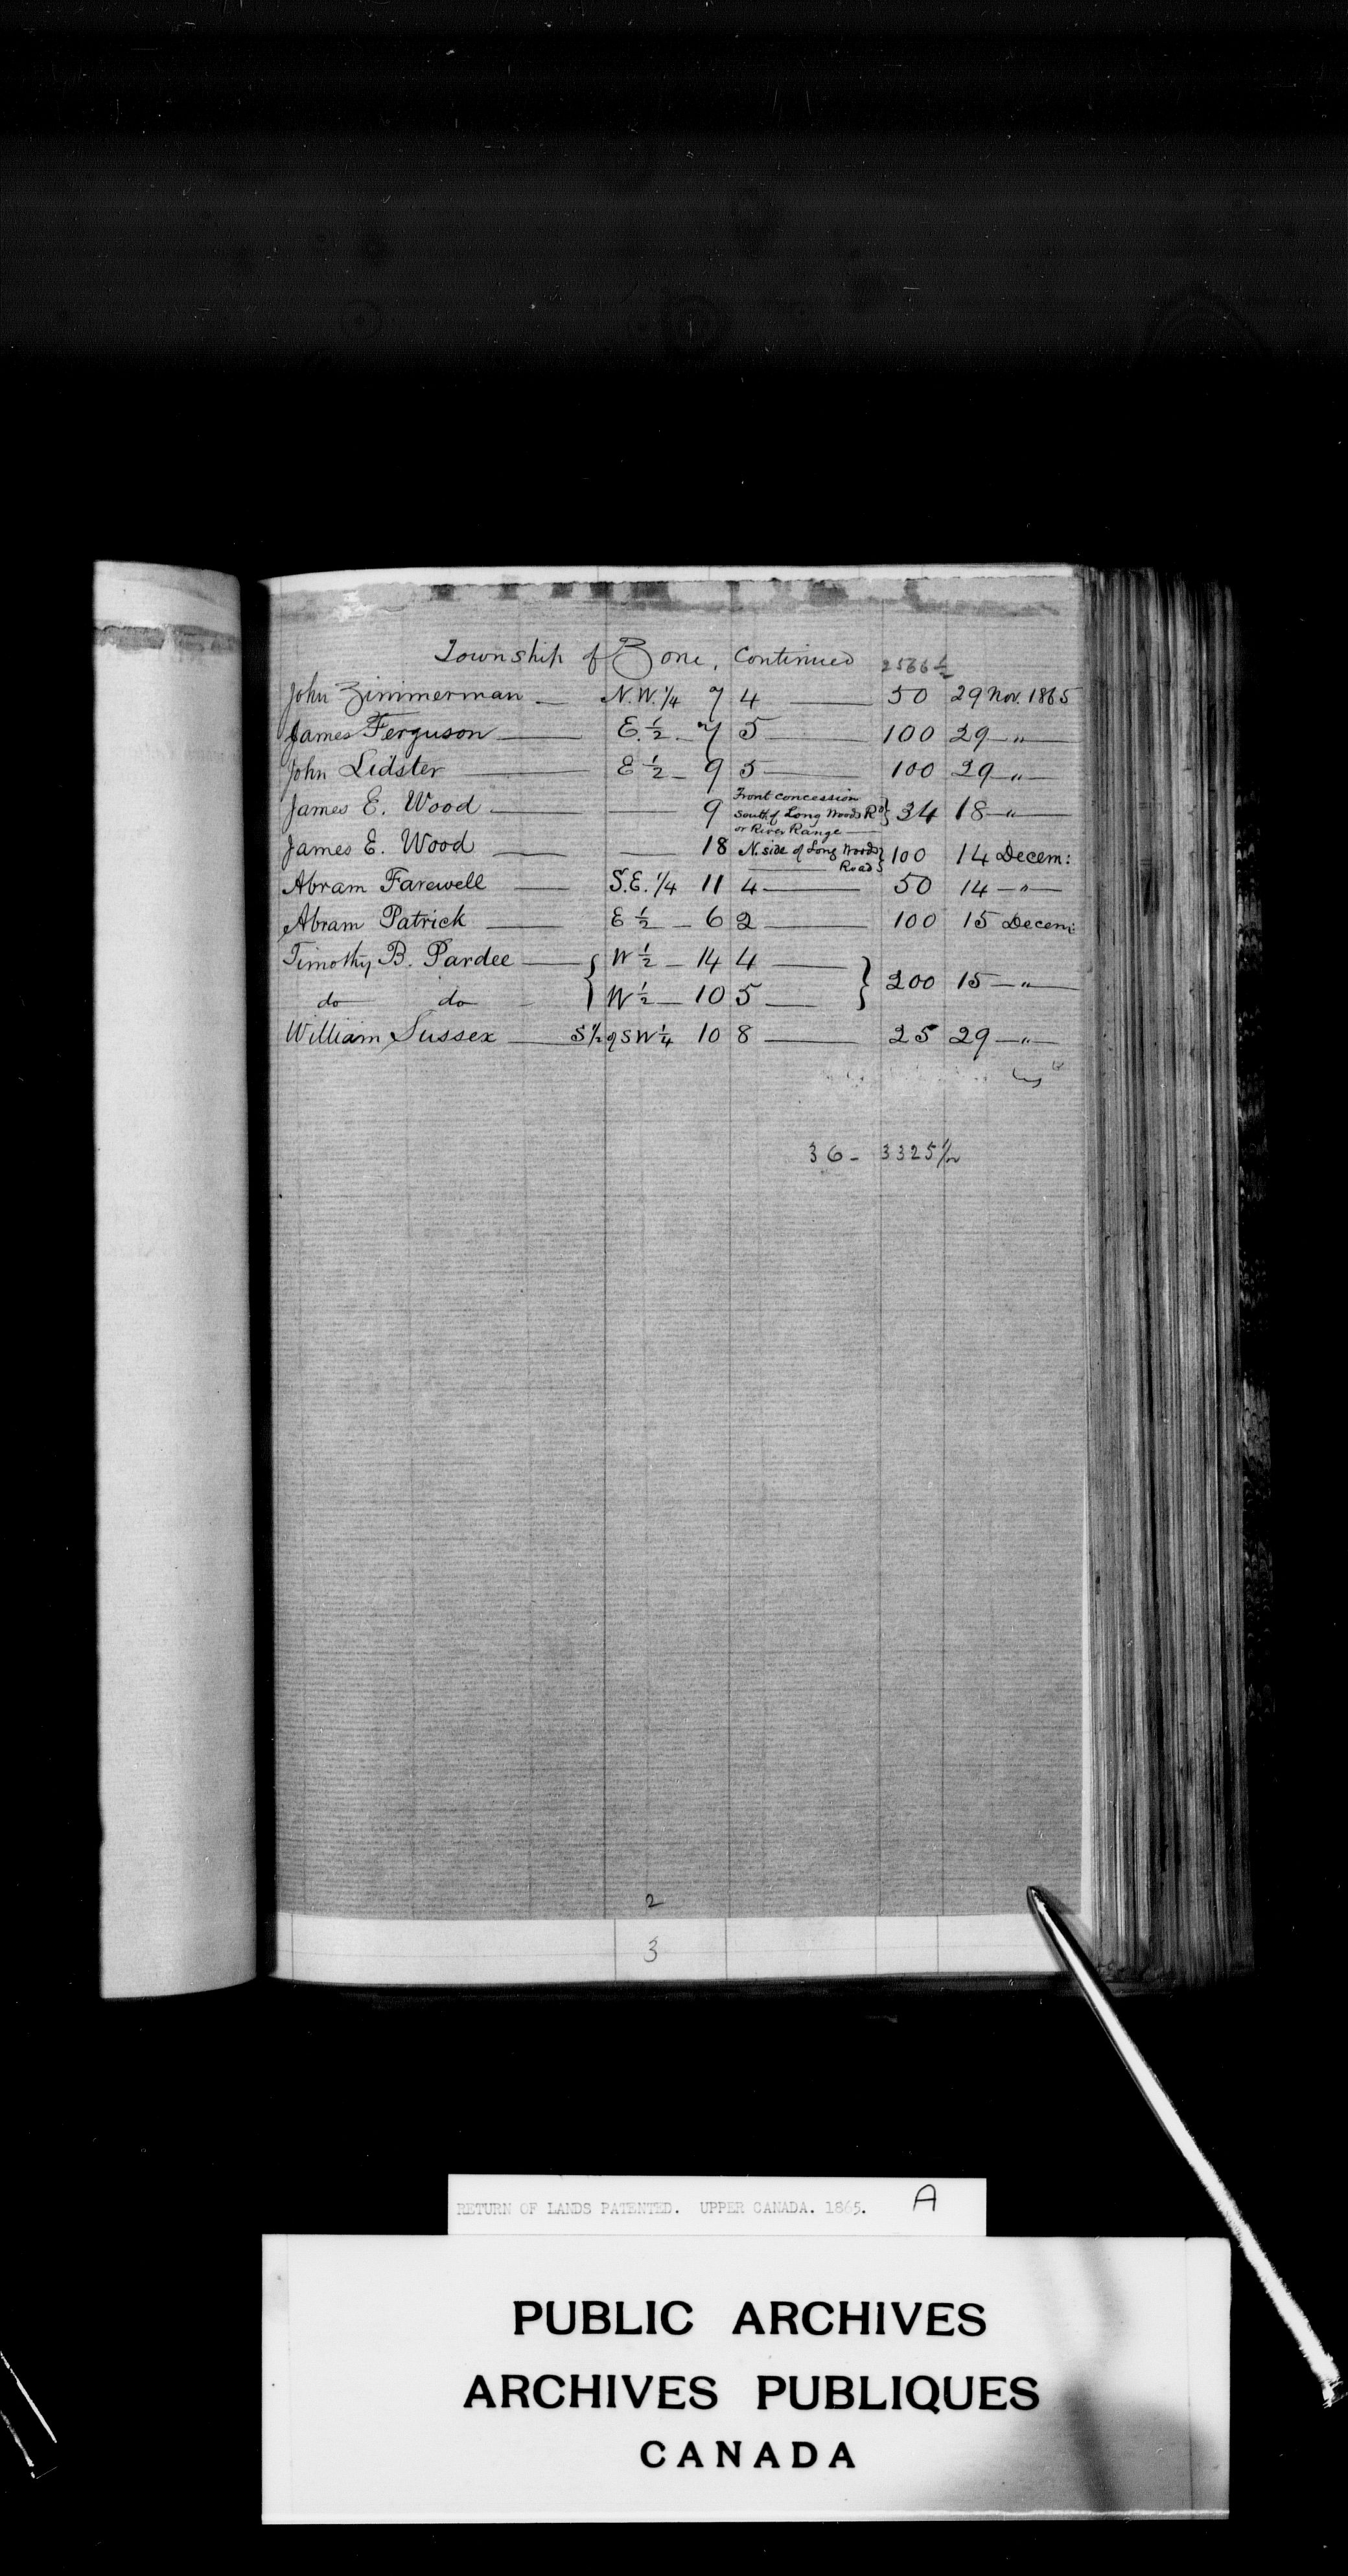 Township of Zone, Continued 2566 1/2
John Zimmerman — N.W. 1/4 7 4 — 50 29 Nov. 1865
James Ferguson — E. 1/2 - 7 5 — 100 29 — " —
John Lidster — E 1/2 - 9 5 — 100 29 — " —
James E. Wood — — 9 Front Concession South of Long Woods Rd or River Range — } 34 18 — " —
James E. Wood — — 18 N. side of Long Woods Road } 100 14 Decem:
Abram Farewell — S.E. 1/4 11 4 — 50 14 — " —
Abram Patrick — E 1/2 - 6 2 — 100 15 Decem:
Timothy B. Pardee — { W 1/2 - 14 4 — } 200 15 — " —
do do - { W 1/2 - 10 5 — }
William Sussex — S 1/2 of SW 1/4 10 8 — 25 29 — " —
36 - 3325 1/2
2
3
RETURN OF LANDS PATENTED. UPPER CANADA. 1865. A
PUBLIC ARCHIVES
ARCHIVES PUBLIQUES
CANADA